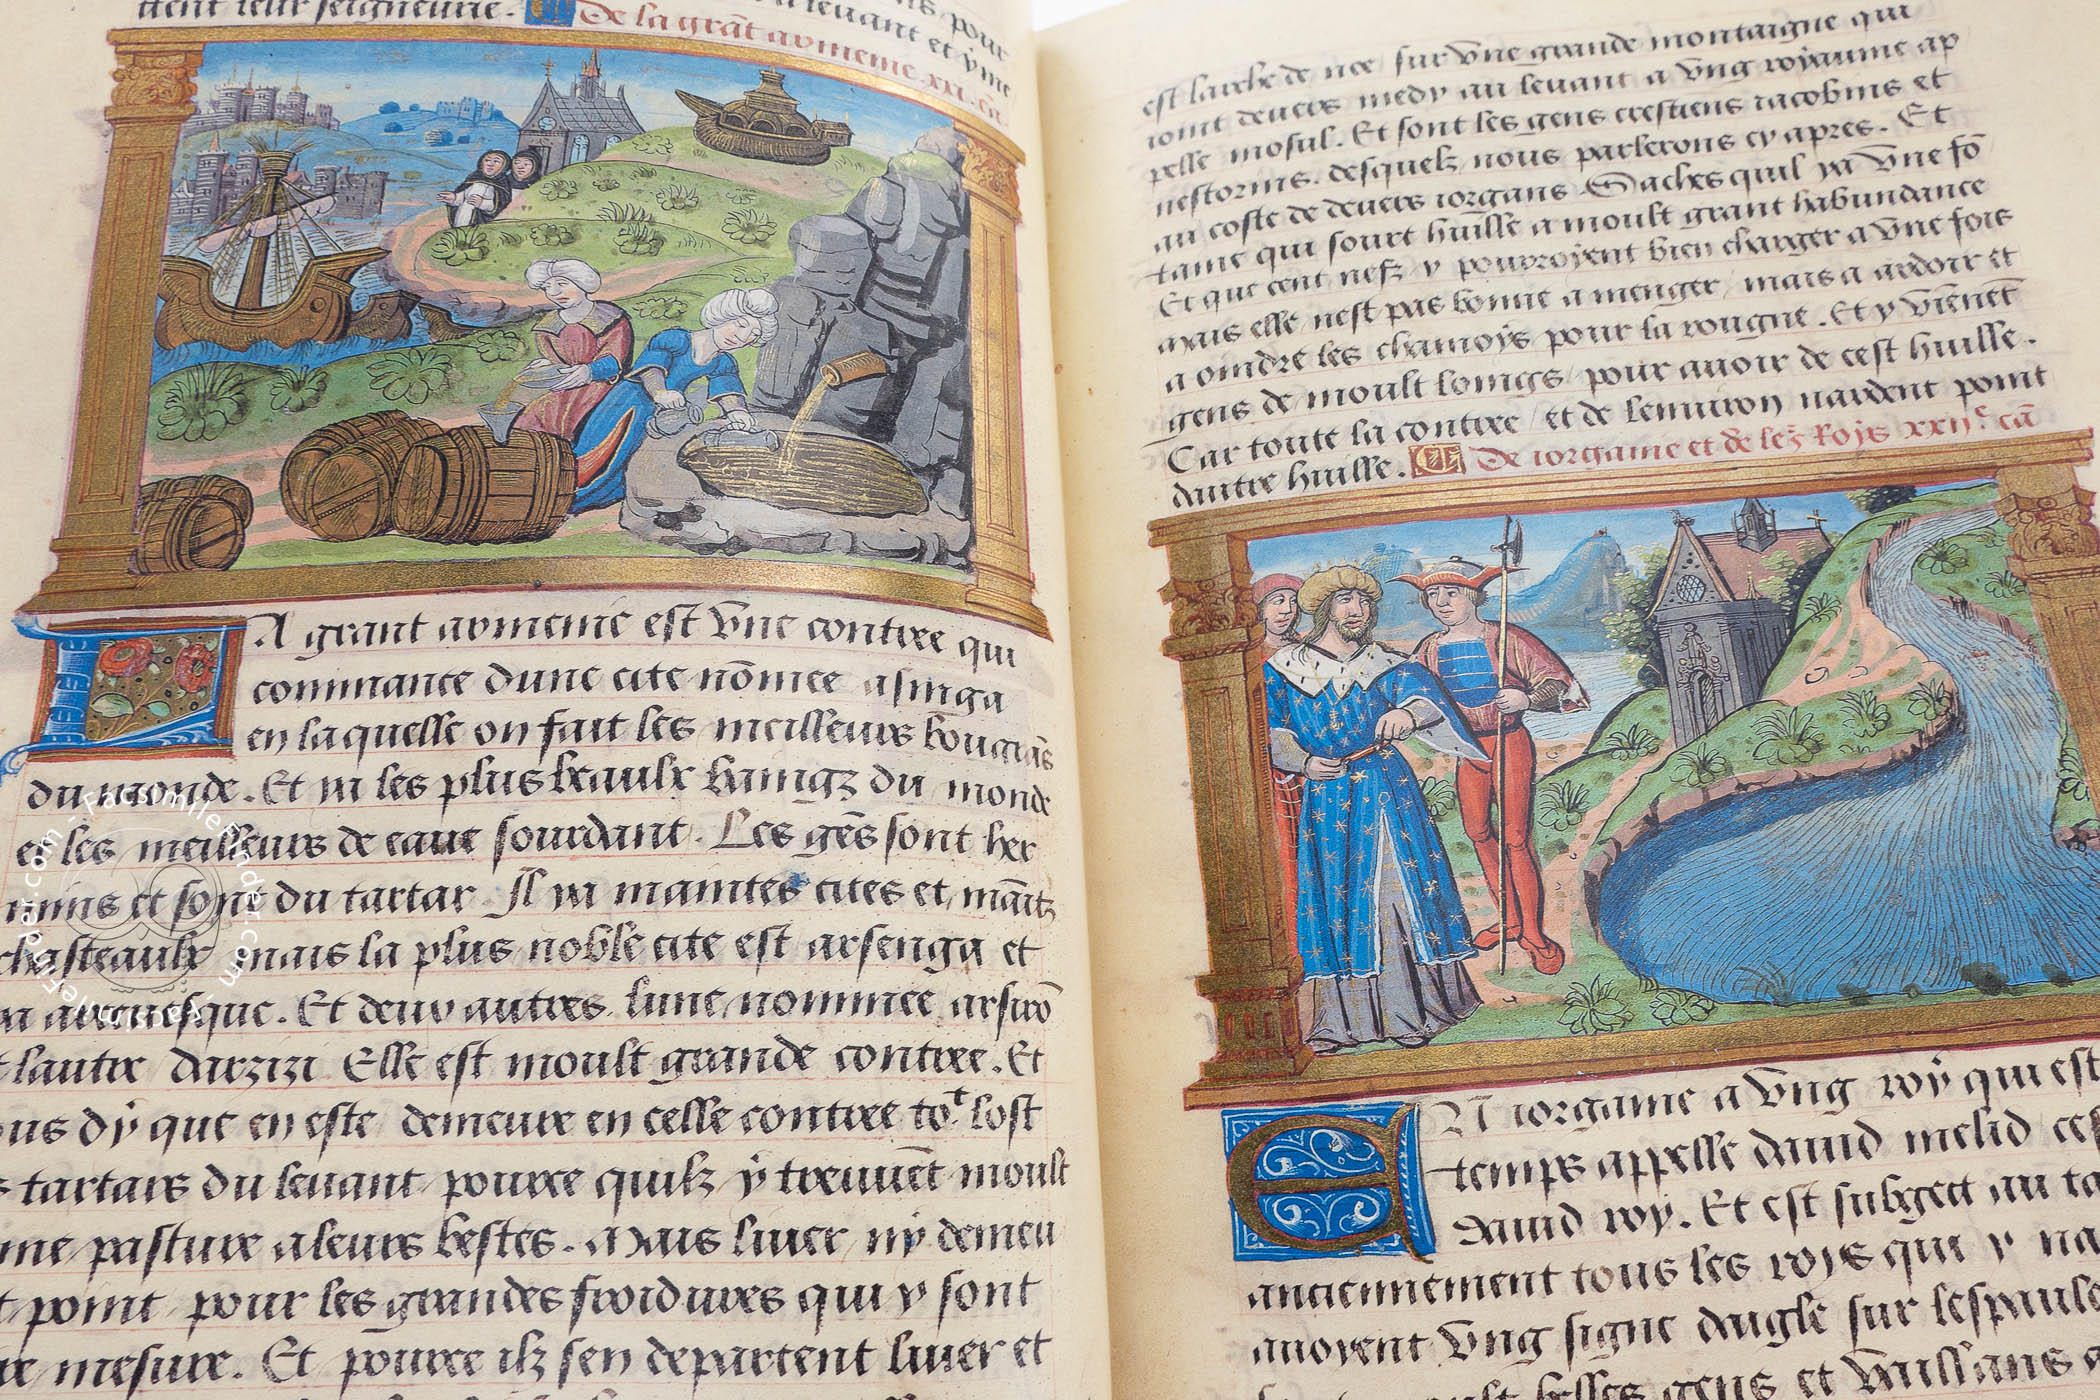 tient leur seigneurie.
pour
leuant et y me
De la grāt armenie xxi. ca.
A grant armenie est vne contree qui
commance dune cite nōmee asinga
en laquelle on fait les meilleurs bougrās
du monde. Et ya les plus beaulx baingz du monde
et les meilleurs de eaue sourdant. Les gēs sont her
mins et sont du tartar. Il ya maintes cites et māītz
chasteaulx mais la plus noble cite est arsenga et
ya arceuesque. Et deux autres lune nommee arsirō
lautre darzizi Elle est moult grande contree. Et
ous dy que en este demeure en celle contree toᵗ lost
s tartars du leuant pource quilz y treuuēt moult
ne pasture a leurs bestes. Mais liuer ny demeu
t point pour les grandes froidures qui y sont
mesure. Et pource ilz sen departent liuer et
est larche de noe sur vne grande montaigne qui
ioint deuers medy au leuant a vng royaume ap
pelle mosul. Et sont les gens crestiens iacobins et
nestorins. desquelz nous parlerons cy apres. Et
au coste de deuers iorgans Saches quil ya vne fō
taine qui sourt huille a moult grant habundance
Et que cent nefz y pourroyent bien charger a vne fois
mais elle nest pas bonne a menger, mais a ardoir et
a oindre les chamoys pour la rougne. Et y viēnēt
gens de moult loings pour auoir de cest huille.
Car toute la contree et de lenuiron nardent point
dautre huille. De iorganie et de lez Roys xxii.ᵉ cā
EN iorganie a vng roy qui est
temps appelle dauid melid ces
dauid roy. Et est subgect au ta
anciennement tous les roys qui y na
auoyent vng signe daigle sur lespaule
belles gens et vaillans
Facsimile Finder · facsimilefinder.com